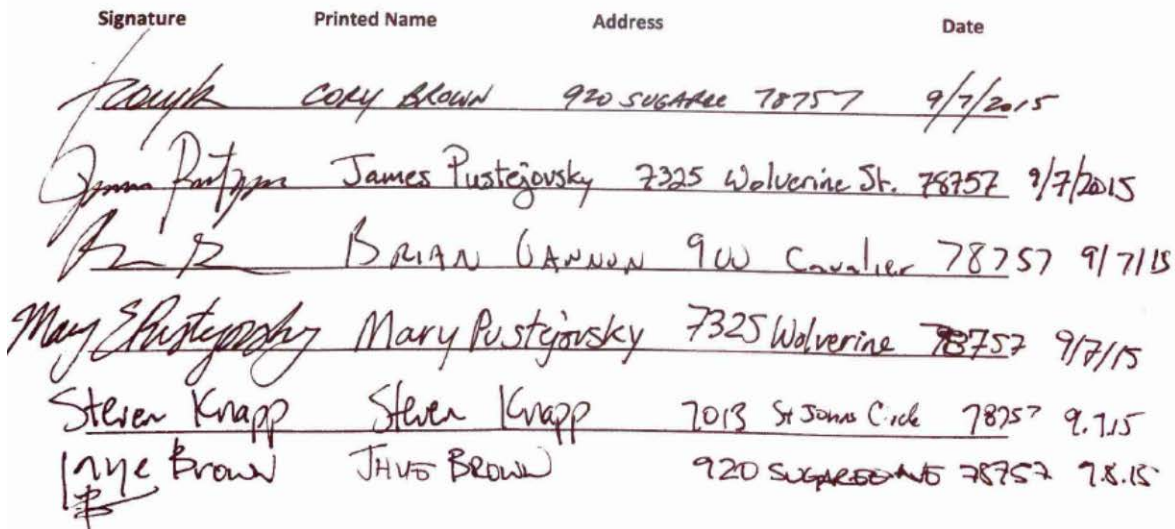 Signature Printed Name Address Date
CORY BROWN 920 SUGAREE 78757 9/7/2015
James Pustejovsky 7325 Wolverine St. 78757 9/7/2015
BRIAN 900 Cavalier 78757 9/7/15
Mary E Pustejovsky Mary Pustejovsky 7325 Wolverine 78757 9/7/15
Steven Knapp Steven Knapp 7013 St Johns Circle 78757 9.7.15
Brown BROWN 920 SUGAREE AVE 78757 9.8.15